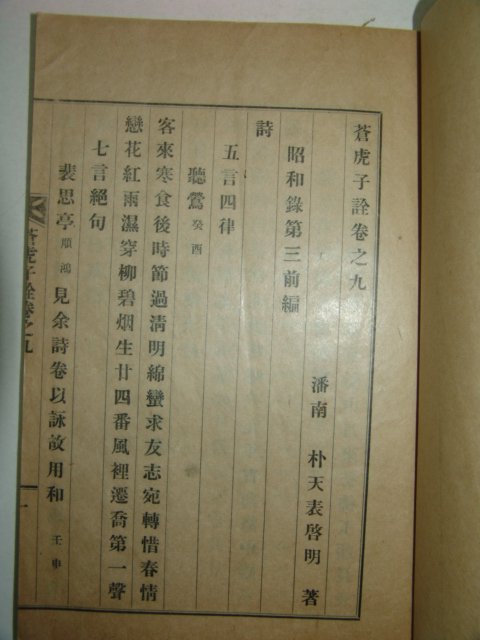 蒼虎子詮卷之九
潘南 朴天表啓明 著
昭和錄第三前編
詩
五言四律
聽鶯 癸酉
客來寒食後時節過淸明綿蠻求友志宛轉惜春情
戀花紅雨濕穿柳碧烟生廿四番風裡遷喬第一聲
七言絕句
裴思亭 順鴻 見余詩卷以詠故用和 壬申
蒼虎子詮卷之九
一